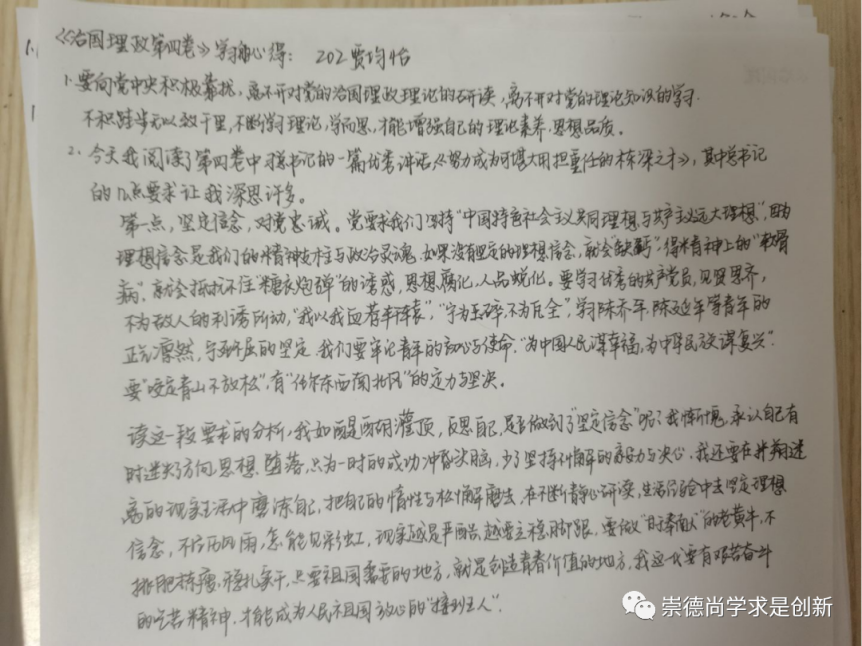 《治国理政第四卷》学习心得： 202 贾均怡
1. 要向党中央积极靠拢，离不开对党的治国理政理论的研读，离不开对党的理论知识的学习.
不积跬步无以致千里，不断学习理论，学而思，才能增强自己的理论素养、思想品质。
2. 今天我阅读了第四卷中习总书记的一篇优秀讲话《努力成为可堪大用担重任的栋梁之才》，其中总书记
的几点要求让我深思许多。
第一点，坚定信念，对党忠诚。党要求我们坚持“中国特色社会主义共同理想与共产主义远大理想”，因为
理想信念是我们的精神支柱与政治灵魂，如果没有坚定的理想信念，就会“缺钙”，得精神上的“软骨
病”，就会抵抗不住“糖衣炮弹”的诱惑，思想腐化，人品蜕化。要学习优秀的共产党员，见贤思齐，
不为敌人的利诱所动，“我以我血荐轩辕”，“宁为玉碎，不为瓦全”，学习陈乔年，陈延年等青年的
正气凛然，与不屈的坚定，我们要牢记青年的初心与使命，“为中国人民谋幸福，为中华民族谋复兴”.
要“咬定青山不放松”，有“任尔东西南北风”的定力与坚决。
读这一段要求的分析，我如醍醐灌顶，反思自己，是否做到了“坚定信念”呢？我惭愧，承认自己有
时迷失了方向，思想堕落，只为一时的成功冲昏头脑，少了坚持不懈的毅力与决心，我还要在扑朔迷
离的现实生活中磨练自己，把自己的惰性与松懈磨去，在不断静心研读，生活历验中去坚定理想
信念，不历风雨，怎能见彩虹，现实越是严酷，越要立稳脚跟，要做“自奉献”的老黄牛，不
挑肥拣瘦，稳扎实干，只要祖国需要的地方，就是创造青春价值的地方，我这一代要有艰苦奋斗
的吃苦精神，才能成为人民祖国放心的“接班人”.
崇德尚学求是创新